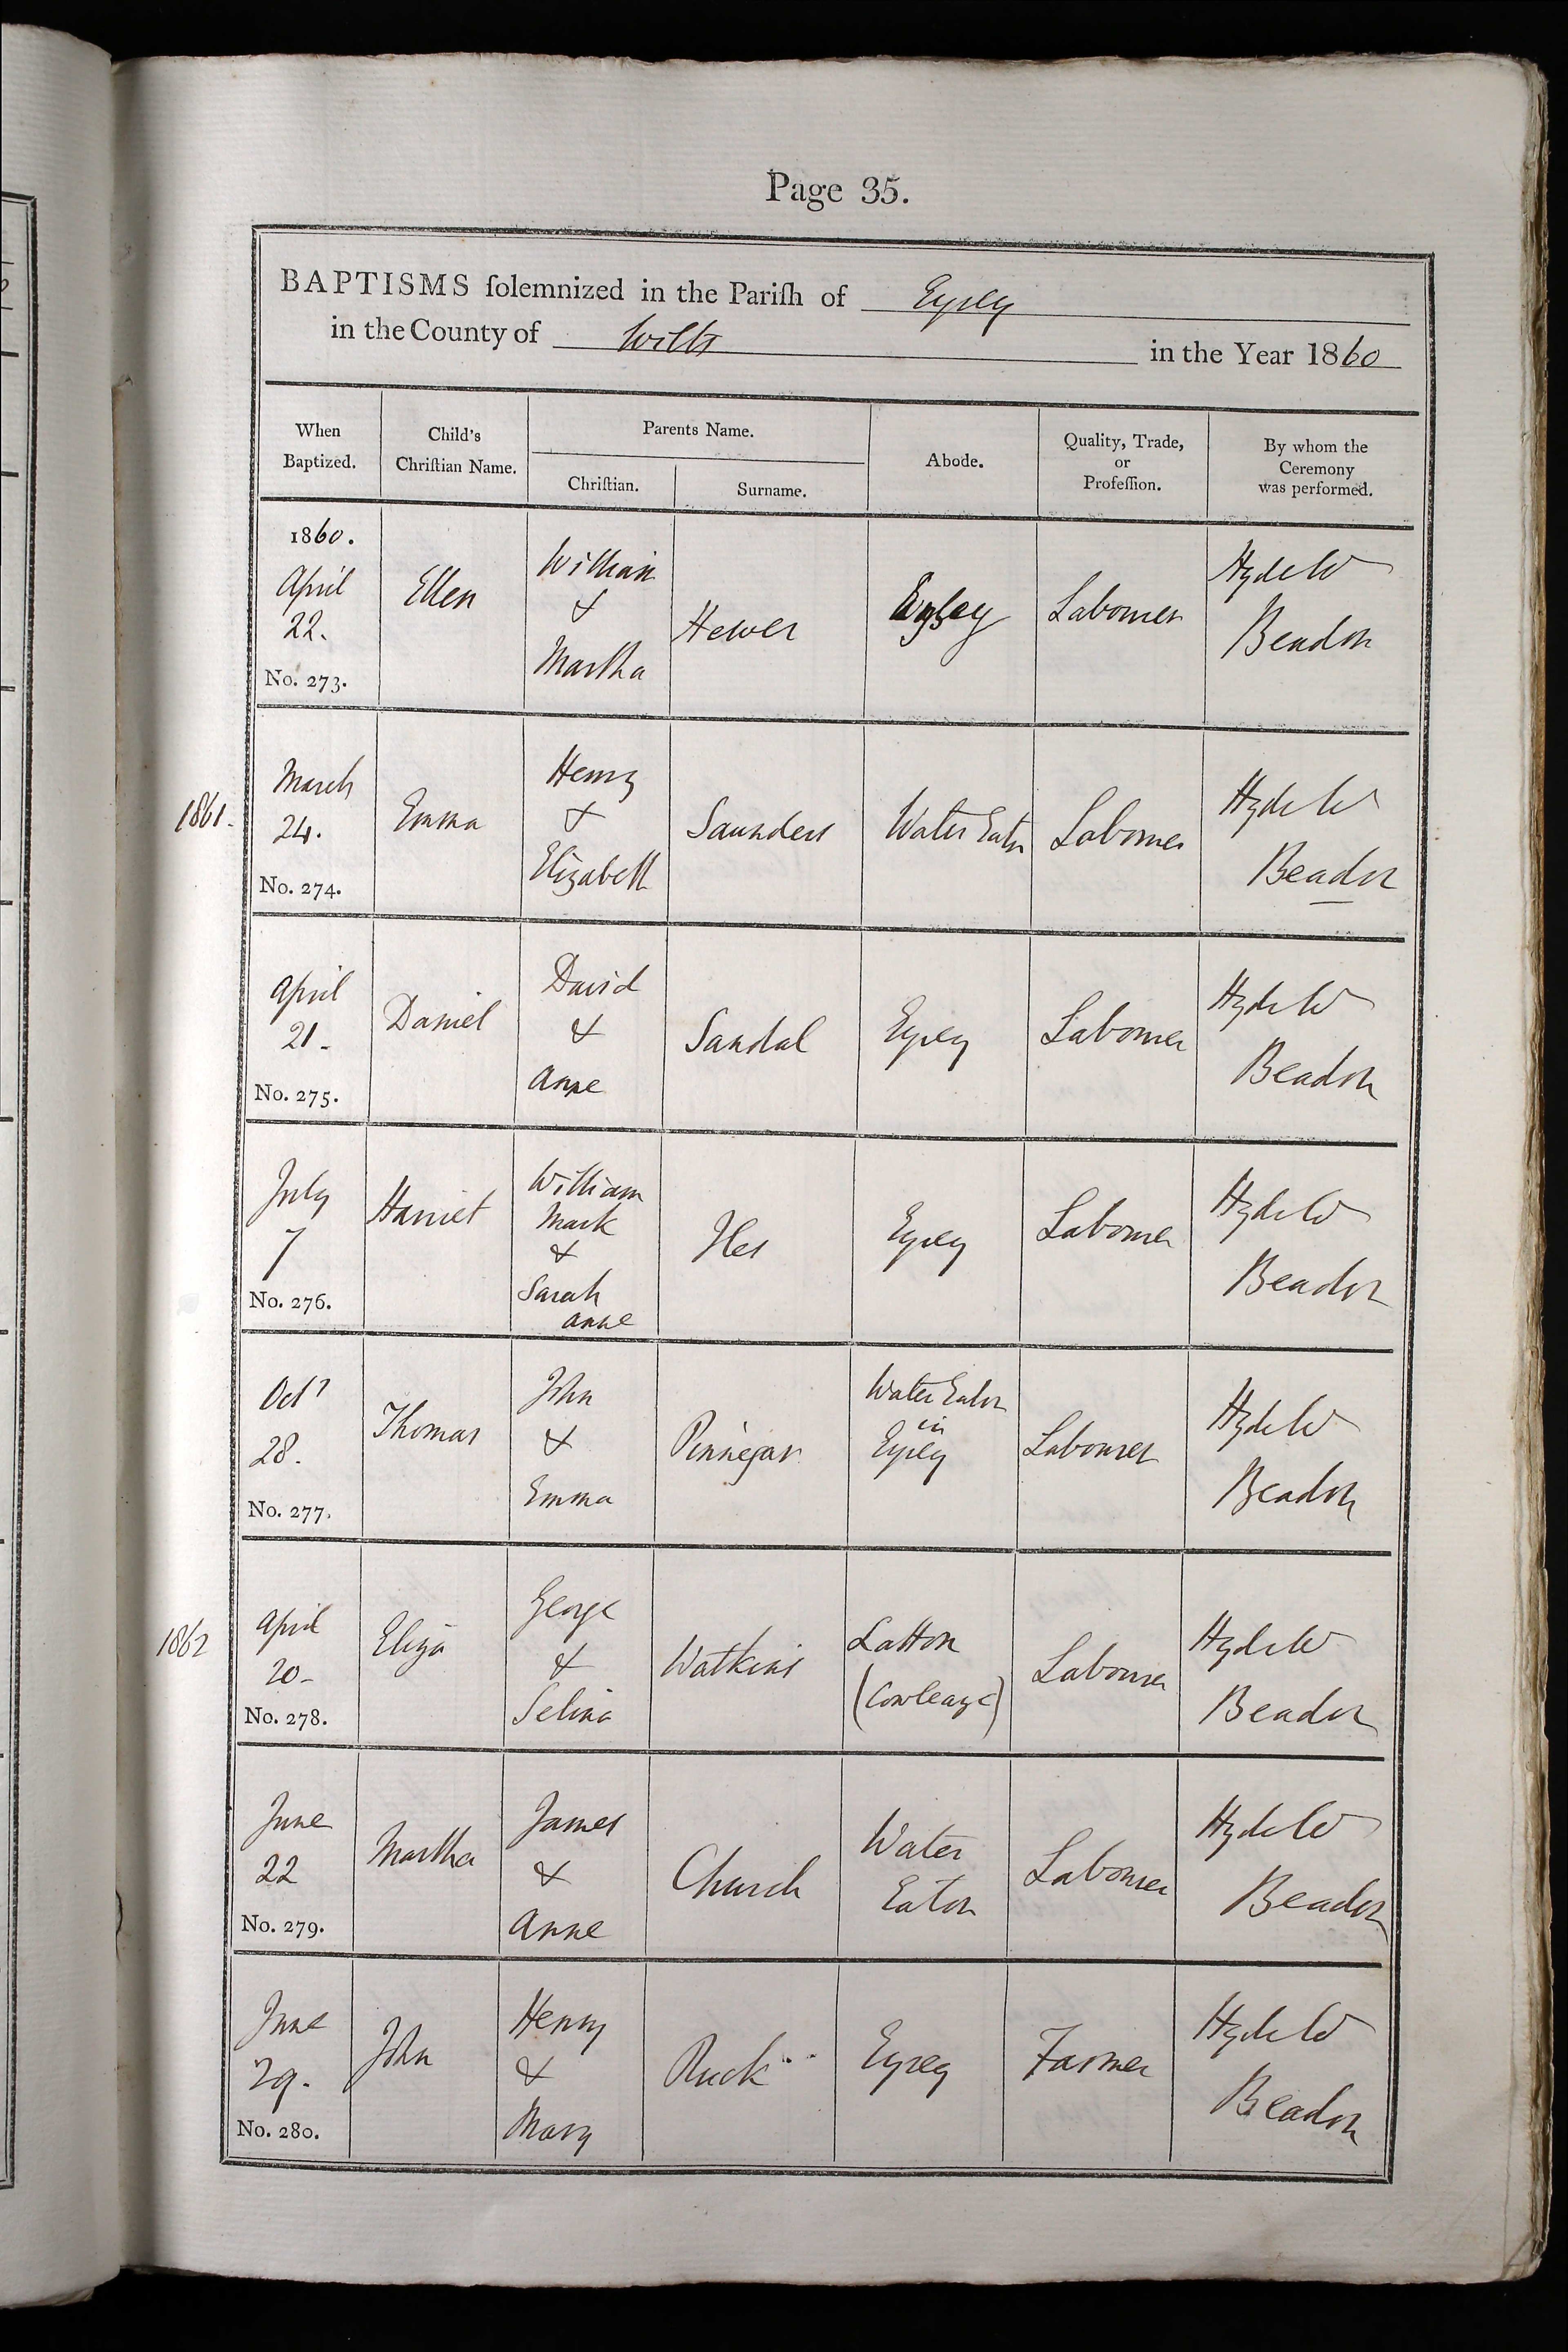 Page 35.
BAPTISMS solemnized in the Parish of Eysey
in the County of Wilts in the Year 1860
When Baptized. Child's Christian Name. Parents Name. Christian. Surname. Abode. Quality, Trade, or Profession. By whom the Ceremony was performed.
1860.
April 22. No. 273. Ellen William & Martha Hewer Eysey Labourer Hyde W Beadon
1861. March 24. No. 274. Emma Henry & Elizabeth Saunders Water Eaton Labourer Hyde W Beadon
April 21- No. 275. Daniel David & Anne Sandal Eysey Labourer Hyde W Beadon
July 7 No. 276. Harriet William Mark & Sarah Anne Iles Eysey Labourer Hyde W Beadon
Octr 28. No. 277. Thomas John & Emma Pinnegar Water Eaton in Eysey Labourer Hyde W Beadon
1862 April 20- No. 278. Eliza George & Selina Watkins Latton (Cowleaze) Labourer Hyde W Beadon
June 22 No. 279. Martha James & Anne Church Water Eaton Labourer Hyde W Beadon
June 29. No. 280. John Henry & Mary Ruck Eysey Farmer Hyde W Beadon